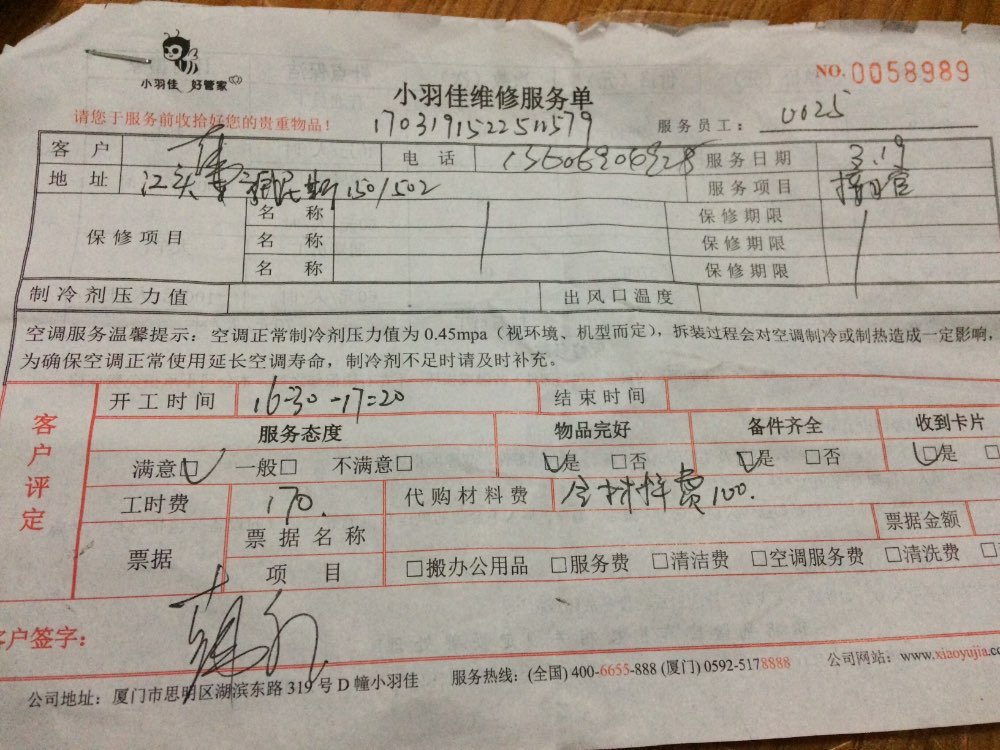 小羽佳 好管家
NO.0058989
小羽佳维修服务单
请您于服务前收拾好您的贵重物品！
170319152251579
服务员工： 0025
客户 电话 13606906928 服务日期 3.19
地址 江头 1501502 服务项目
保修项目 名称 保修期限
名称 保修期限
名称 保修期限
制冷剂压力值 出风口温度
空调服务温馨提示：空调正常制冷剂压力值为0.45mpa（视环境、机型而定），拆装过程会对空调制冷或制热造成一定影响，
为确保空调正常使用延长空调寿命，制冷剂不足时请及时补充。
客户评定
开工时间 16-30-17=20 结束时间
服务态度 物品完好 备件齐全 收到卡片
满意□ 一般□ 不满意□ □是 □否 □是 □否 □是
工时费 170. 代购材料费 含材料费100.
票据 票据名称 票据金额
项目 □搬办公用品 □服务费 □清洁费 □空调服务费 □清洗费
客户签字：
公司地址：厦门市思明区湖滨东路319号D幢小羽佳 服务热线：(全国) 400-6655-888 (厦门) 0592-5178888 公司网站：www.xiaoyujia.co